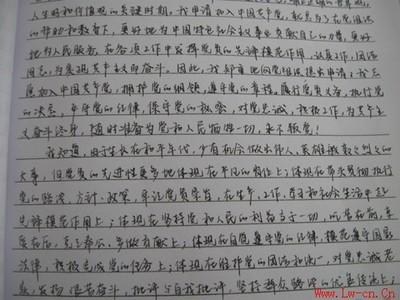 人生的和价值观的关键时期,我申请加入中国共产党,
的帮助和教育下,更好地为中国特色社会主义事业贡献自己的力量,更好
地为人民服务,在各项工作中发挥党员的先锋模范作用,认真工作,团结
同志,为实现共产主义而奋斗。因此,我郑重地向党组织提出申请:我志
愿加入中国共产党,拥护党的纲领,遵守党的章程,履行党员义务,执行党
的决定,严守党的纪律,保守党的秘密,对党忠诚,积极工作,为共产主
义奋斗终身,随时准备为党和人民牺牲一切,永不叛党!
我知道,由于生长在和平年代,少有机会做出伟人、英雄般轰轰烈烈的
大事,但党员的先进性更多地体现在平凡的岗位上:体现在带头贯彻执行
党的路线、方针、政策,牢记党员宗旨,在生产、工作、学习和社会生活中起
先锋模范作用上;体现在坚持党和人民的利益高于一切,吃苦在前,享
受在后,克己奉公,多做贡献上;体现在自觉遵守党的纪律,模范遵守国家
法律,积极完成党的任务上;体现在维护党的团结和统一,对党忠诚老
实,发扬艰苦奋斗,批评与自我批评,坚持群众路线的优良传统上;
www.Lw-cn.Cn